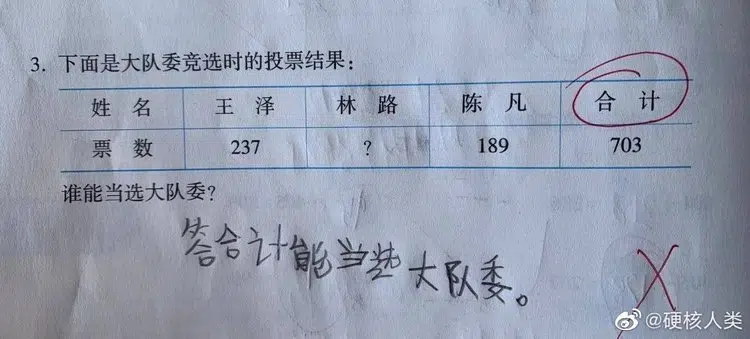 3. 下面是大队委竞选时的投票结果：
姓 名 王 泽 林 路 陈 凡 合 计
票 数 237 ? 189 703
谁能当选大队委？
答合计能当选大队委。
@硬核人类